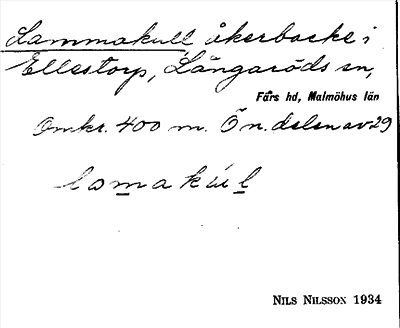 Lammakull åkerbacke i
Ellestorp, Långaröds sn,
Färs hd, Malmöhus län
Omkr. 400 m. Ö n. delen av 29
lamakul
NILS NILSSON 1934